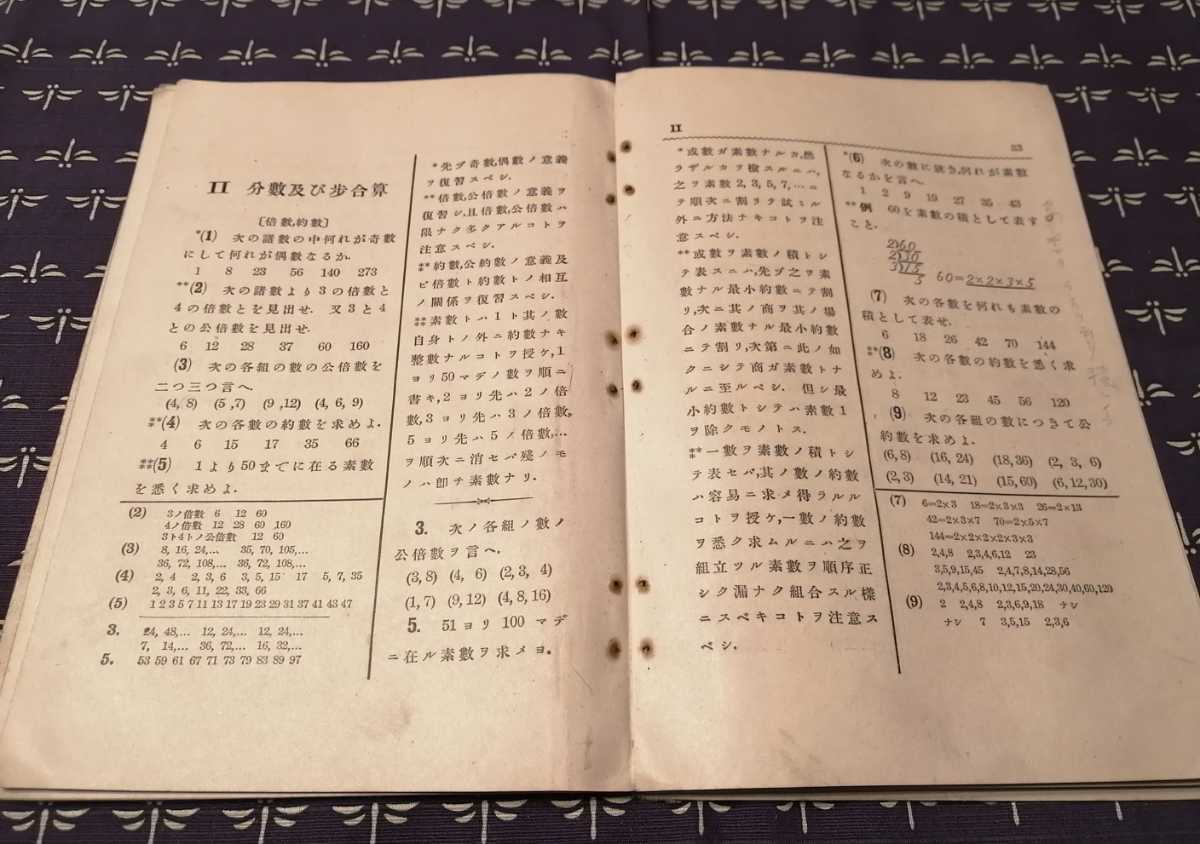 II 分數及び步合算
〔倍數,約數〕
*(1) 次の諸數の中何れが奇數
にして何れが偶數なるか.
1 8 23 56 140 273
**(2) 次の諸數より3の倍數と
4の倍數とを見出せ. 又3と4
との公倍數を見出せ.
6 12 28 37 60 160
(3) 次の各組の數の公倍數を
二つ三つ言へ.
(4, 8) (5 ,7) (9 ,12) (4, 6, 9)
**(4) 次の各數の約數を求めよ.
4 6 15 17 35 66
**(5) 1より50までに在る素數
を悉く求めよ.
(2) 3ノ倍數 6 12 60
4ノ倍數 12 28 60 160
3ト4トノ公倍數 12 60
(3) 8, 16, 24,... 35, 70, 105,...
36, 72, 108,... 36, 72, 108,...
(4) 2, 4 2, 3, 6 3, 5, 15 17 5, 7, 35
2, 3, 6, 11, 22, 33, 66
(5) 1 2 3 5 7 11 13 17 19 23 29 31 37 41 43 47
3. 24, 48,... 12, 24,... 12, 24,...
7, 14,... 36, 72,... 16, 32,...
5. 53 59 61 67 71 73 79 83 89 97
*先ヅ奇數,偶數ノ意義
ヲ復習スベシ.
**倍數,公倍數ノ意義ヲ
復習シ,且倍數,公倍數ハ
限ナク多クアルコトヲ
注意スベシ.
**約數,公約數ノ意義及
ビ倍數ト約數トノ相互
ノ關係ヲ復習スベシ.
**素數トハ1ト其ノ數
自身トノ外ニ約數ナキ
整數ナルコトヲ授ケ,1
ヨリ50マデノ數ヲ順ニ
書キ,2ヨリ先ハ2ノ倍
數,3ヨリ先ハ3ノ倍數,
5ヨリ先ハ5ノ倍數,...
ヲ順次ニ消セバ殘ノモ
ノハ卽チ素數ナリ.
3. 次ノ各組ノ數ノ
公倍數ヲ言ヘ.
(3, 8) (4, 6) (2, 3, 4)
(1, 7) (9, 12) (4, 8, 16)
5. 51ヨリ100マデ
ニ在ル素數ヲ求メヨ.
II
*或數ガ素數ナルカ,然
ラザルカヲ檢スルニハ,
之ヲ素數2, 3, 5, 7,...ニ
テ順次ニ割リテ試ミル
外ニ方法ナキコトヲ注
意スベシ.
**或數ヲ素數ノ積トシ
テ表スニハ,先ヅ之ヲ素
數ナル最小約數ニテ割
リ,次ニ其ノ商ヲ其ノ場
合ノ素數ナル最小約數
ニテ割リ,次第ニ此ノ如
クニシテ商ガ素數トナ
ルニ至ルベシ. 但シ最
小約數トシテハ素數1
ヲ除クモノトス.
**一數ヲ素數ノ積トシ
テ表セバ,其ノ數ノ約數
ハ容易ニ求メ得ラルル
コトヲ授ケ,一數ノ約數
ヲ悉ク求ムルニハ之ヲ
組立ツル素數ヲ順序正
シク漏ナク組合スル樣
ニスベキコトヲ注意ス
ベシ.
*(6) 次の數に就き,何れが素數
なるかを言へ.
1 2 9 19 27 35 43
**例 60を素數の積として表す
こと.
2)60
2)30
3)15
5 60=2×2×3×5
(7) 次の各數を何れも素數の
積として表せ.
6 18 26 42 70 144
**(8) 次の各數の約數を悉く求
めよ.
8 12 23 45 56 120
(9) 次の各組の數につきて公
約數を求めよ.
(6, 8) (16, 24) (18, 36) (2, 3, 6)
(2, 3) (14, 21) (15, 60) (6, 12, 30)
(7) 6=2×3 18=2×3×3 26=2×13
42=2×3×7 70=2×5×7
144=2×2×2×2×3×3
(8) 2,4,8 2,3,4,6,12 23
3,5,9,15,45 2,4,7,8,14,28,56
2,3,4,5,6,8,10,12,15,20,24,30,40,60,120
(9) 2 2,4,8 2,3,6,9,18 ナシ
ナシ 7 3,5,15 2,3,6